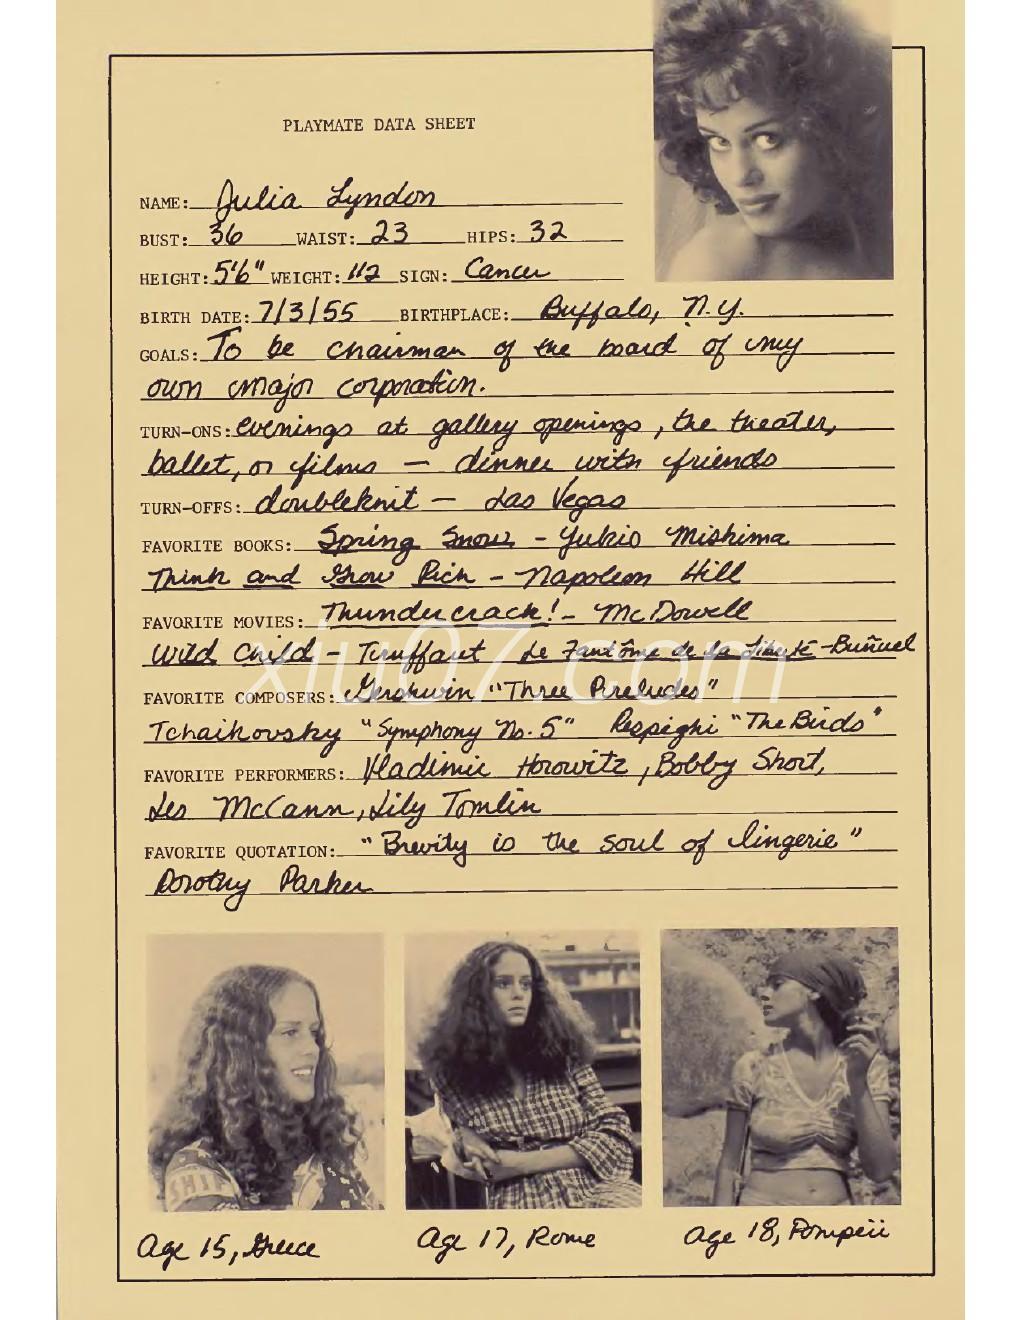 PLAYMATE DATA SHEET
NAME: Julia Lyndon
BUST: 36 WAIST: 23 HIPS: 32
HEIGHT: 5'6" WEIGHT: 112 SIGN: Cancer
BIRTH DATE: 7/3/55 BIRTHPLACE: Buffalo, N.Y.
GOALS: To be chairman of the board of my
own major corporation.
TURN-ONS: evenings at gallery openings, the theater,
ballet, or films — dinner with friends
TURN-OFFS: doubleknit — Las Vegas
FAVORITE BOOKS: Spring Snow - Yukio Mishima
Think and Grow Rich - Napoleon Hill
FAVORITE MOVIES: Thundercrack! - McDowell
Wild Child - Truffaut Le Fantôme de la Liberté - Buñuel
xiu07.com
FAVORITE COMPOSERS: Gershwin "Three Preludes"
Tchaikovsky "Symphony No. 5" Respighi "The Birds"
FAVORITE PERFORMERS: Vladimir Horowitz, Bobby Short,
Les McCann, Lily Tomlin
FAVORITE QUOTATION: "Brevity is the soul of lingerie"
Dorothy Parker
SHIP
Age 15, Greece
Age 17, Rome
Age 18, Pompeii